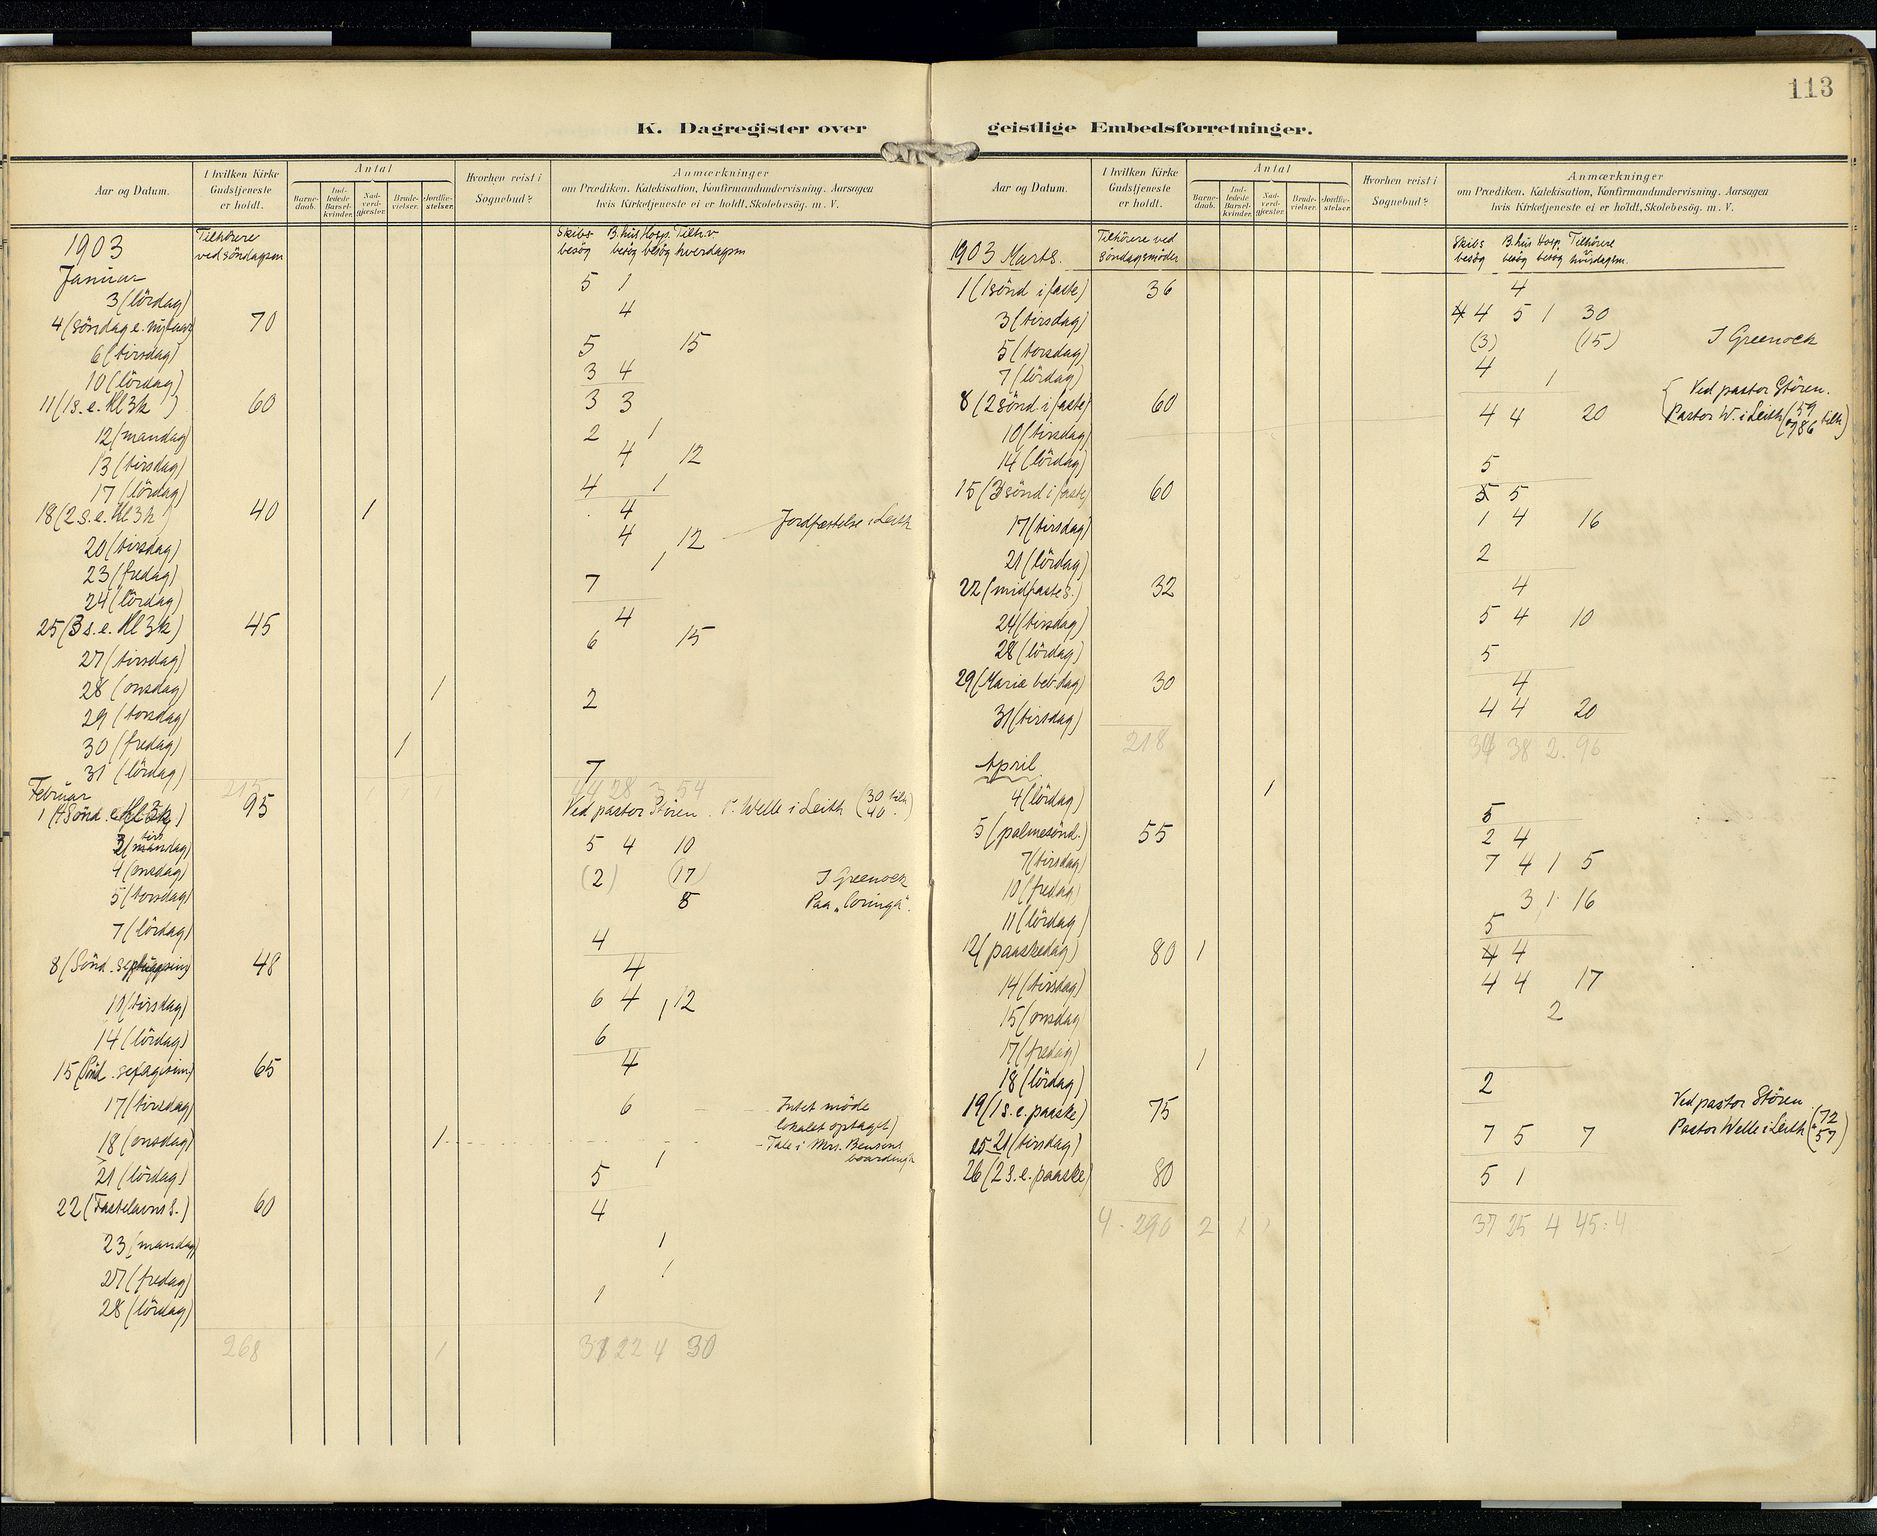 113
K. Dagregister over geistlige Embedsforretninger.
Aar og Datum. I hvilken Kirke Gudstjeneste er holdt. Antal Barnedaab. Indledede Barselkvinder. Nadverdgjester. Brudevielser. Jordfæstelser. Hvorhen reist i Sognebud? Anmærkninger om Prædiken, Katekisation, Konfirmandundervisning. Aarsagen hvis Kirketjeneste ei er holdt, Skolebesøg. m. V.
1903 Tilhörere ved söndagsm Skibsbesög B.hus besög Hosp. besög Tilh. v hverdagsm
Januar
3 (lördag) 5 1
4 (söndag e. nytaar) 70 4
6 (tirsdag) 5 15
10 (lördag) 3 4
11 (1 s. e. Hl 3k) 60 3 3
12 (mandag) 2 1
13 (tirsdag) 4 12
17 (lördag) 4 1
18 (2 s. e. Hl 3k) 40 1 4
20 (tirsdag) 4 12 Jordfæstelse i Leith
23 (fredag) 1
24 (lördag) 7
25 (3 s. e. Hl 3k) 45 4
27 (tirsdag) 6 15
28 (onsdag) 1
29 (torsdag) 2
30 (fredag) 1
31 (lördag) 7
215 1 1 1 44 28 3 54
Februar
1 (4 Sönd. e Hl 3k) 95 Ved pastor Stören. P. Welle i Leith (30 tilh 40)
3 (tirsdag) 5 4 10
4 (onsdag) (2) (17) I Greenock
5 (torsdag) 8 Paa "Coringa".
7 (lördag) 4
8 (Sönd. septuagesima) 48 4
10 (tirsdag) 6 4 1 12
14 (lördag) 6
15 (Sönd. sexagesima) 65 4
17 (tirsdag) 6 Intet möde lokalet optaget)
18 (onsdag) 1 - Tale i Mrs. Bensons boardingh
21 (lördag) 5 1
22 (Fastelavns S.) 60 4
23 (mandag) 1
27 (fredag) 1
28 (lördag) 1
268 1 31 22 4 30
Aar og Datum. I hvilken Kirke Gudstjeneste er holdt. Antal Barnedaab. Indledede Barselkvinder. Nadverdgjester. Brudevielser. Jordfæstelser. Hvorhen reist i Sognebud? Anmærkninger om Prædiken, Katekisation, Konfirmandundervisning. Aarsagen hvis Kirketjeneste ei er holdt, Skolebesög. m. V.
1903 Marts. Tilhörere ved söndagsmöder Skibsbesög B.hus besög Hosp. besög Tilhörere v hverdagsm.
1 (1 sönd i faste) 36 4
3 (tirsdag) 4 5 1 30
5 (torsdag) (3) (15) I Greenock
7 (lördag) 4 1
8 (2 sönd i faste) 60 Ved pastor Stören. Pastor W. i Leith (59 86 tilh)
10 (tirsdag) 4 4 20
14 (lördag) 5
15 (3 sönd i faste) 60 5 5
17 (tirsdag) 1 4 16
21 (lördag) 2
22 (midfaste s.) 32 4
24 (tirsdag) 5 4 10
28 (lördag) 5
29 (Mariæ beb. dag) 30 4
31 (tirsdag) 4 4 20
218 34 38 2. 96
April
4 (lördag) 1 5
5 (palmesönd.) 55 2 4
7 (tirsdag) 7 4 1 5
10 (fredag) 3 1 16
11 (lördag) 5
12 (paaskedag) 80 1 4 4
14 (tirsdag) 4 4 17
15 (onsdag 2
17 (fredag) 1
18 (lördag) 2
19 (1 s. e. paaske) 75 Ved pastor Stören Pastor Welle i Leith (72 57)
21 (tirsdag) 7 5 7
26 (2 s. e. paaske) 80 5 1
4 - 290 2 37 25 4 45:4